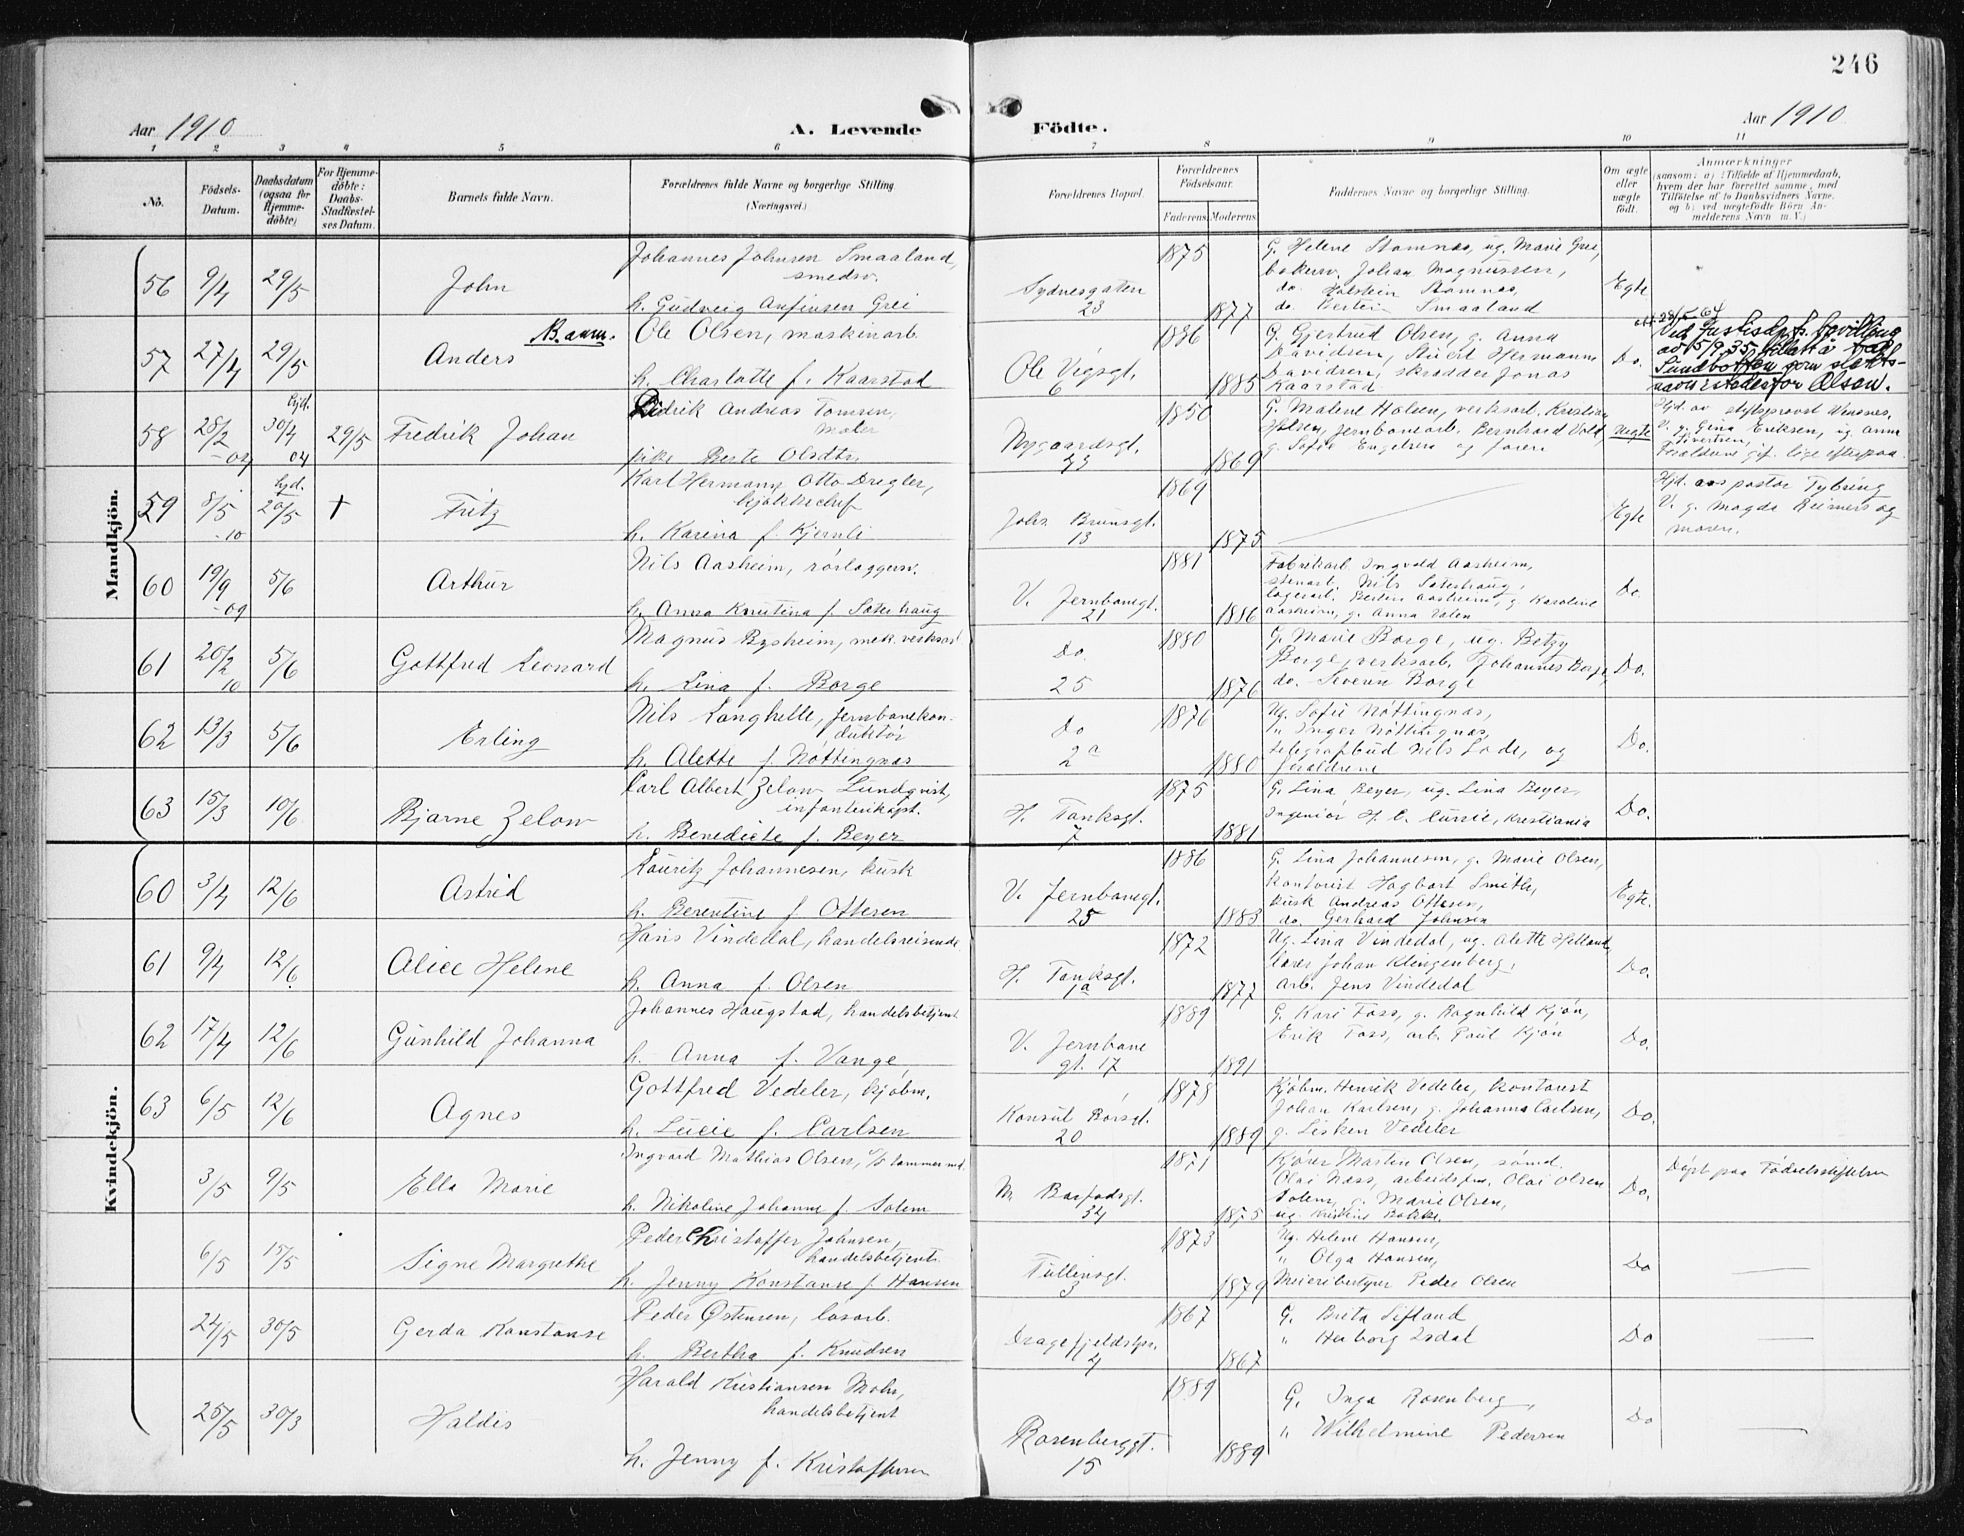 246
Aar 1910
A. Levende
Födte.
Aar 1910
1 2 3 4 5 6 7 8 9 10 11
No.
Födsels-
Datum.
Daabsdatum
(ogsaa for
Hjemme-
döbte)
For Hjemme-
döbte:
Daabs-
Stadfæstel-
ses Datum.
Barnets fulde Navn.
Forældrenes fulde Navne og borgerlige Stilling.
(Næringsvei.)
Forældrenes Bopæl.
Forældrenes
Födselsaar.
Faderens Moderens
Faddernes Navne og borgerlige Stilling.
Om ægte
eller
uægte
födt.
Anmærkninger
(saasom: a) i Tilfælde af Hjemmedaab,
hvem der har forrettet samme, med
Tilföielse af to Daabsvidners Navne,
og b) ved uægtefödte Börn An-
melderens Navn m. V.)
Mandkjön.
56 9/4 29/5 John
Johannes Johnsen Smaaland,
smedsv.
h. Gudveig Anfinsen Grei
Sydnesgaten
23
1875
1877
G. Helene Stamnes, ug. Marie Grei,
bakersv. Johan Magnussen,
do. Holstein Stamnes,
do. Smaaland
Egte
57 27/4 29/5 Anders
Ole Olsen, maskinarb.
h. Charlotte f. Kaarstad
Ole Vigsgt.
6
1886
1885
G. Gjertrud Olsen, g. Anna
Davidsen, Hermann
Davidsen, skrædder Jonas
Kaarstad
Do.
navn istedetfor Olsen.
58 28/2 -04 hjd. 30/4 04 29/5 Fredrik Johan
Didrik Andreas Tomsen,
maler
pike Berte Olsdtr.
Nygaardsgt.
1850
1869
G. Malene Holsen, verksarb. Kristian
Holsen, jernbanearb. Bernhard Vold,
g. Sofie Engelsen og faren
uegte
59 8/5 -10 hjd. 20/5 + Fritz
Karl Hermann Otto Dregler,
kjøkkenchef
h. Karina f. Kjernli
Johs Brunsgt.
13
1869
1875
Egte
Hjd. av pastor Tybring
V. g. Magda Reimers og
moren.
60 19/9 -09 5/6 Arthur
Nils Aasheim, rørlæggersv.
h. Anna Knutina f. Soterhaug
V. Jernbanegt.
21
1881
1886
Fabrikarb. Ingvald Aasheim,
stenarb. Nils Soterhaug,
lagerarb. Aasheim, g. Karoline
Aasheim, g. Anna Valen
Do.
61 20/2 10 5/6 Gottfred Leonard
Magnus Bysheim, mek. verksarb.
h. Lina f. Borge
Do.
25
1880
1876
G. Marie Borge, ug. Betzy
Borge, verksarb. Johannes Borge,
do. Severin Borge
Do.
62 13/3 5/6 Erling
Nils Langhelle, jernbanekon-
duktør
h. Alette f. Nøttingnæs
Do
2a
1876
1880
Ug. Sofie Nøttingnæs,
" Inger Nøttingnæs,
telegrafbud Nils Lade, og
forældrene
Do.
63 15/3 10/6 Bjarne Zelow
Carl Albert Zelow Lundqvist,
infanterikapt.
h. Benedicte f. Beyer
H. Tanksgt.
7
1875
1881
G. Lina Beyer, ug. Lina Beyer,
Ingeniør H. C. Currie, Kristiania
Do.
Kvindekjön.
60 3/4 12/6 Astrid
Lauritz Johannesen, kusk
h. Berentine f. Ottesen
V. Jernbanegt.
25
1886
1883
G. Lina Johannesen, g. Marie Olsen,
kontorist Hagbart Smith,
kusk Andreas Ottesen,
do. Gerhard Johnsen
Egte.
61 9/4 12/6 Alice Helene
Hans Vindedal, handelsreisende
h. Anna f. Olsen
H. Tanksgt.
1a
1872
1877
Ug. Lina Vindedal, ug. Alette Helland,
Johan Klingenberg,
arb. Jens Vindedal
Do.
62 17/4 12/6 Gunhild Johanna
Johannes Haugstad, handelsbetjent
h. Anna f. Vange
V. Jernbane
gt. 17
1889
1891
G. Kari Foss, g. Ragnhild Kjøn,
Erik Foss, arb. Paul Kjøn
Do.
63 6/5 12/6 Agnes
Gottfred Vedeler, kjøbm.
h. Lucie f. Carlsen
Konsul Børsgt.
20
1878
1889
Kjøbm. Henrik Vedeler, kontorist
Johan Karlsen, g. Johanna Carlsen,
g. Lisken Vedeler
Do.
3/5 9/5 Ella Marie
Ingvard Mathias Olsen, tømmermd.
h. Nikoline Johanne f. Solem
M. Baefadsgt.
34
1871
1875
Kjører Martin Olsen, sømd.
Olai Næss, arbeidsfm. Olai Olsen
Solem, g. Marie Olsen,
ug. Bakke.
Do.
Døpt paa Fødselsstiftelsen
6/5 15/5 Signe Margrethe
Peder Christoffer Johnsen,
handelsbetjent
h. Jenny Konstanse f. Hansen
Tullinsgt.
3
1873
1879
Ug. Helene Hansen,
" Olga Hansen,
Meieribestyrer Peder Olsen
Do
24/5 30/5 Gerda Konstanse
Peder Østensen, løsarb.
h. Bertha f. Knudsen
Dragefjeldstpr.
4
1867
1867
G. Brita Sifland
" Herborg Isdal
Do
25/5 30/3 Haldis
Harald Kristiansen Mohr,
handelsbetjent
h. Jenny f. Kristoffersen
Rosenberggt.
15
1889
1889
G. Inga Rosenberg,
" Wilhelmine Pedersen
Do